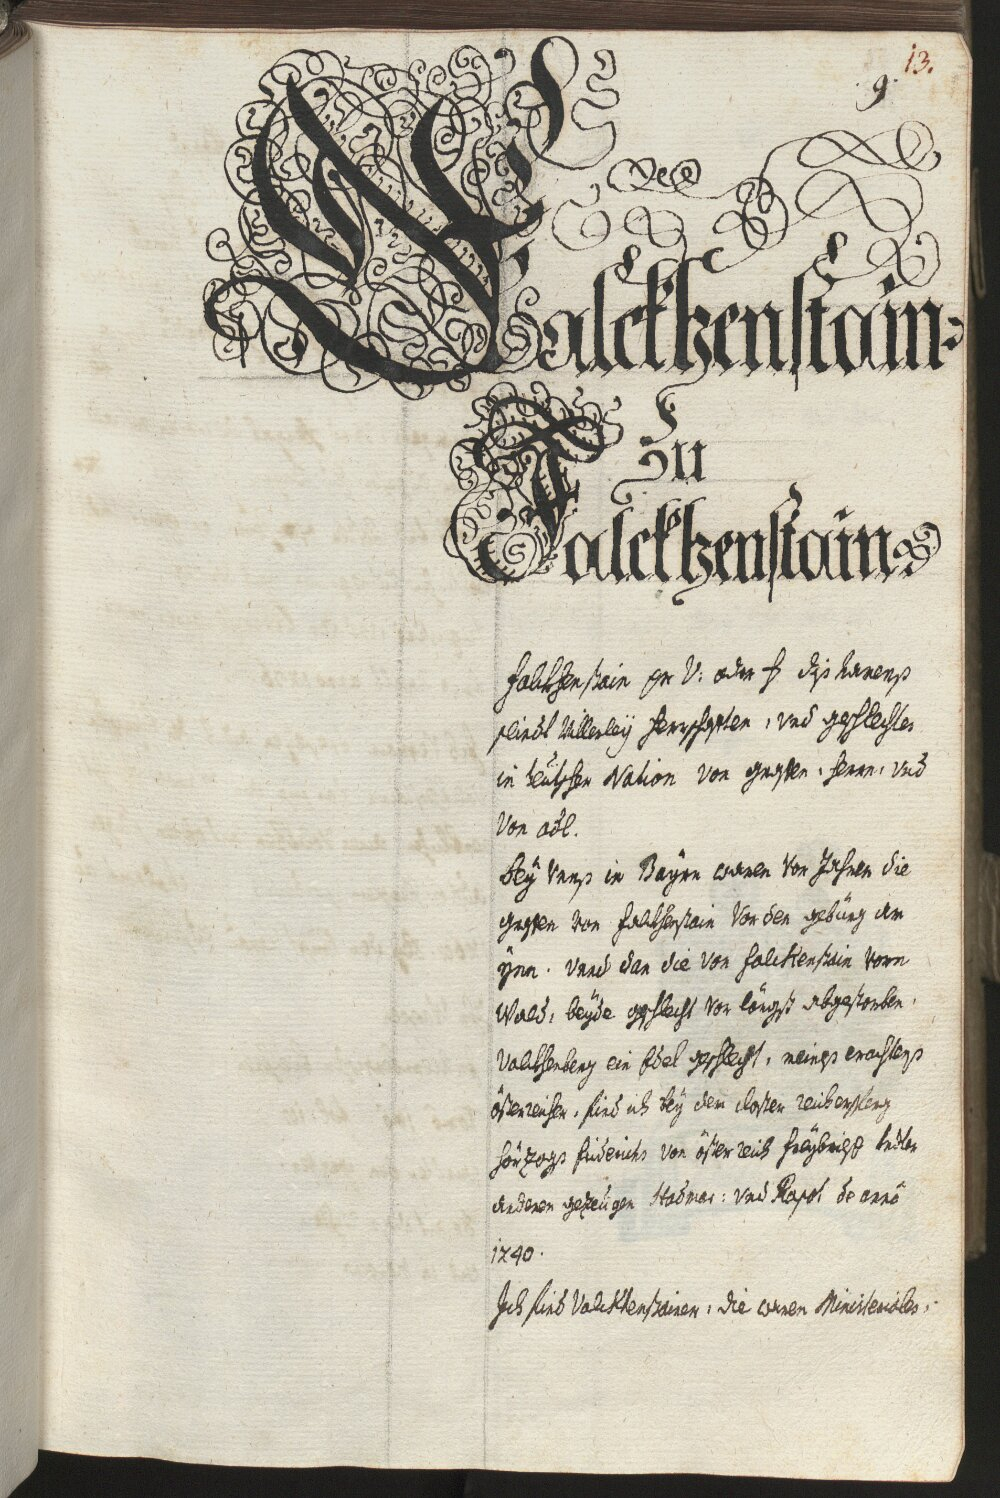 13.
9.
Valckhenstain
Zu
Falckhenstain
falckhenstain per V: oder f diss namenss
seindt Villerleÿ herrschafften, vnd geschlechter
in teütscher Nation von graffen, herrn, vnd
Von adl.
beÿ vnnss in Baÿrn waren vor Jahren die
graffen von falckhenstain Vor den gebürg am
ÿnn. vnnd dan die von falckhenstain vorm
Wald, beÿde geschlecht vor längst abgestorben,
Valckhenberg ein Edel geschlecht, meinss erachtenss
össterreicher, find ich beÿ dem closter
hörzogs friderichs von össterreich freÿbrieff vnder
anderen gezeügen Hadmar: vnd Rapot de anno
1240.
Ich find Valckhenstainer, die waren Ministeriales,